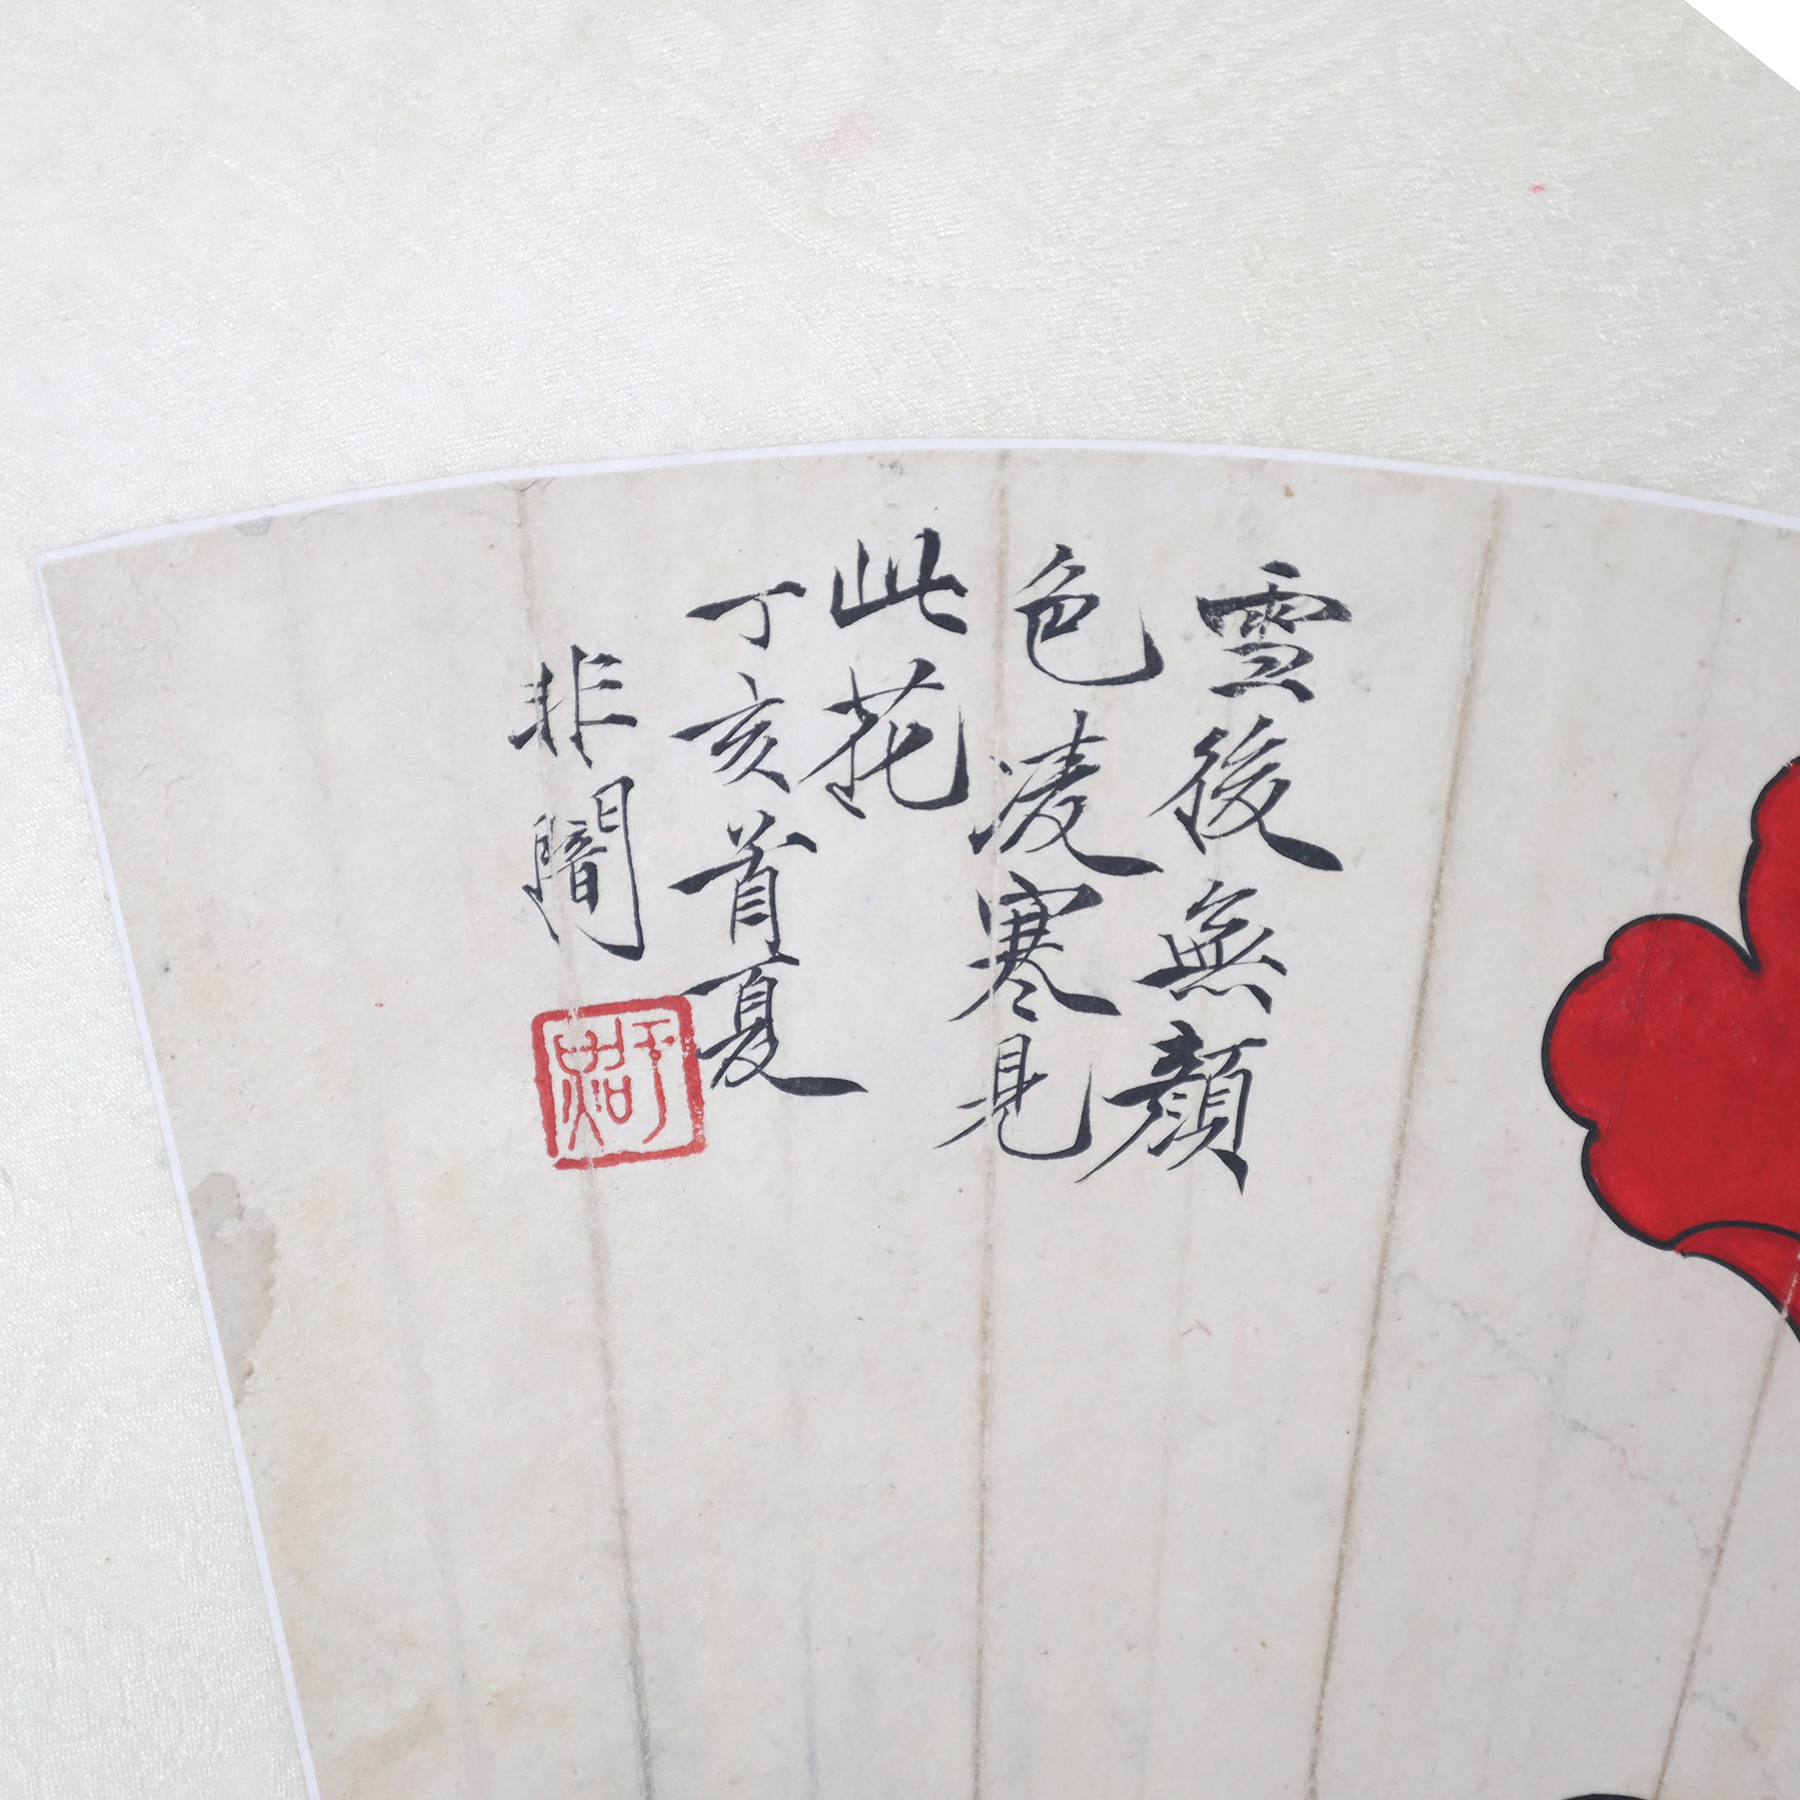 雪後無顏
色凌寒見
此花
丁亥首夏
非闇